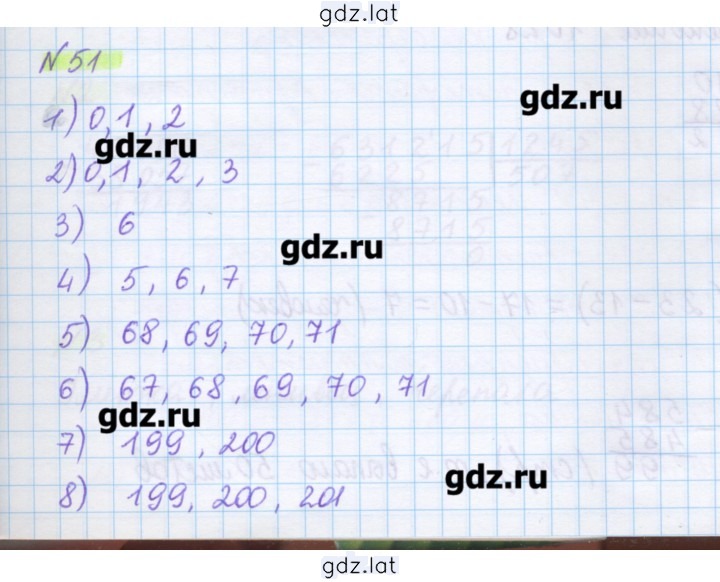 gdz.lat
№ 51
gdz.ru
1) 0, 1, 2
gdz.ru
2) 0, 1, 2, 3
3) 6
gdz.ru
4) 5, 6, 7
5) 68, 69, 70, 71
6) 67, 68, 69, 70, 71
gdz.ru
7) 199, 200
gdz.ru
8) 199, 200, 201
gdz.lat